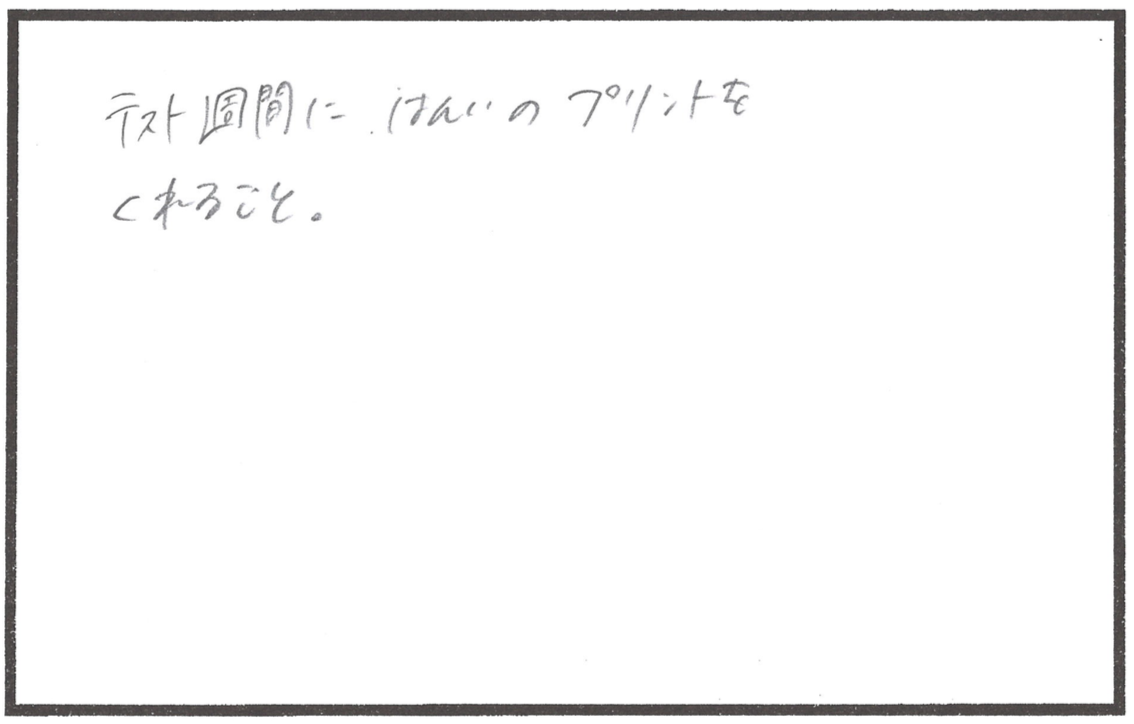 テスト週間に、はんいのプリントを
くれること。